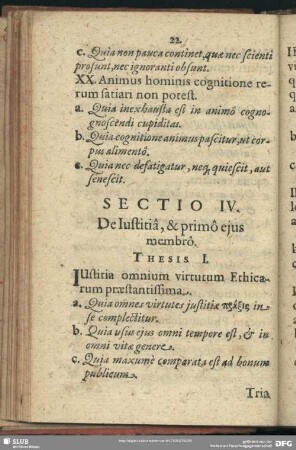 22.
c. Quia non pauca continet, quæ nec scienti
prosunt, nec ignoranti obsunt.
XX. Animus hominis cognitione re-
rum satiari non potest.
a. Quia inexhausta est in animô cogno-
gnoscendi cupiditas.
b. Quia cognitione animus pascitur, ut cor-
pus alimentô.
c. Quia nec defatigatur, neq; quiescit, aut
senescit.
SECTIO IV.
De Iustitiâ, & primô ejus
membrô.
THESIS I.
IUstitia omnium virtutum Ethica-
rum præstantissima.
a. Quia omnes virtutes justitiæ πρᾶξις in
se complectitur.
b. Quia usus ejus omni tempore est, & in
omni vitæ genere.
c. Quia maxumè comparata est ad bonum
publicum.
Tria
SLUB
DFG